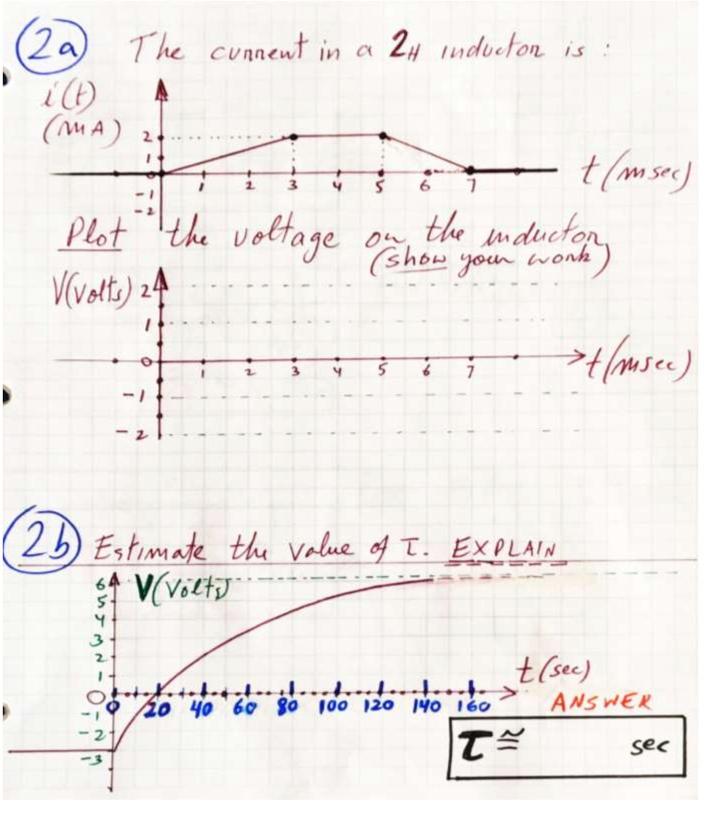 2a The current in a 2H inductor is :
i(t)
(mA)
2
1
-1
-2
1 2 3 4 5 6 7
t(msec)
Plot the voltage on the inductor
(show your work)
V(Volts)
2
1
0
-1
-2
1 2 3 4 5 6 7
t(msec)
2b Estimate the value of τ. EXPLAIN
V(Volts)
6
5
4
3
2
1
0
-1
-2
-3
t(sec)
0 20 40 60 80 100 120 140 160
ANSWER
τ ≅ sec